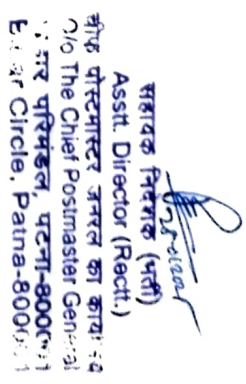 सहायक निदेशक (भर्ती)
Asstt. Director (Rectt.)
चीफ पोस्टमास्टर जनरल का कार्यालय
O/o The Chief Postmaster General
परिमंडल, पटना-800001
Circle, Patna-800001